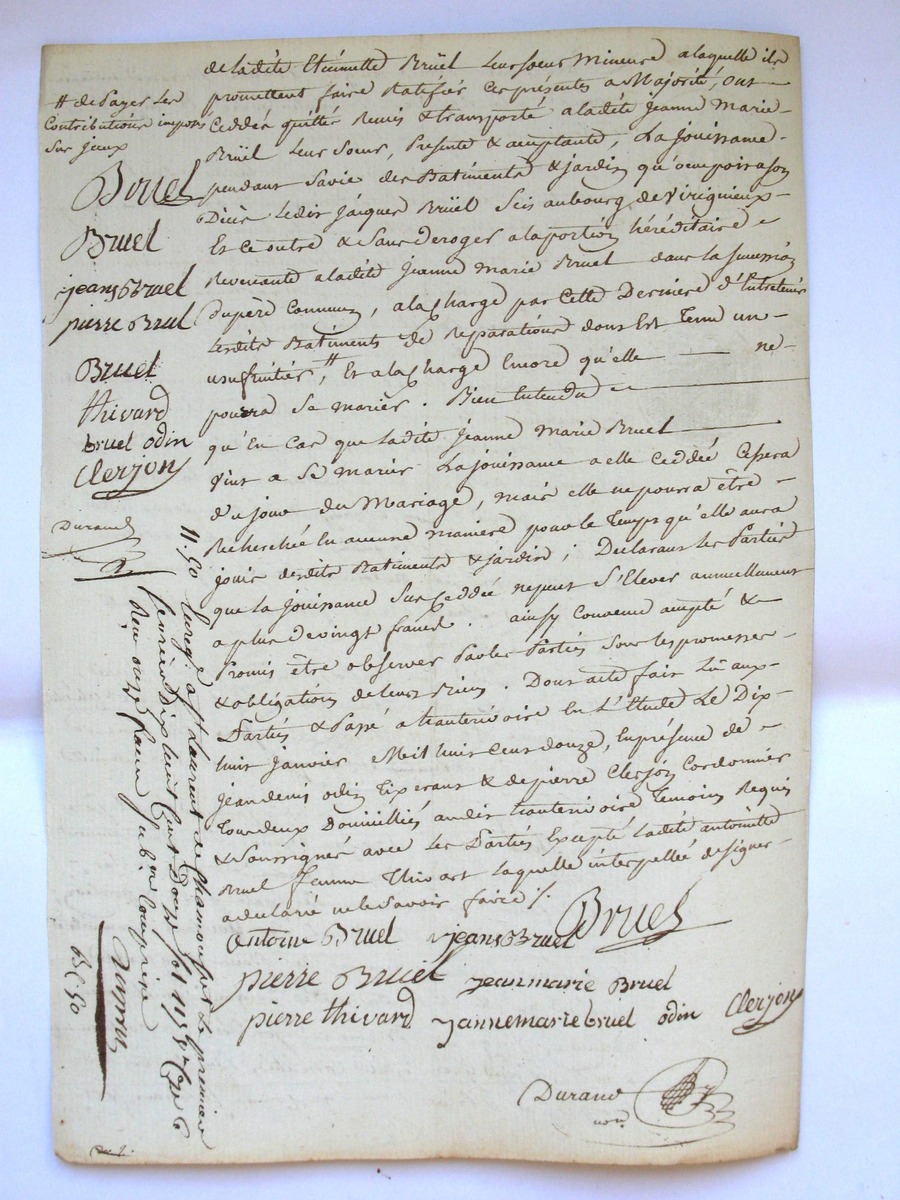 de ladite Etiennette Brüel leur soeur Mineure a laquelle ils
promettent faire Ratifier ces présentes a Majorité, ont
Ceddé quitté Remis & transporté a ladite Jeanne Marie
Brüel leur Soeur, Présente & aceptante, La jouissance
pendant Sa vie des Batiments & jardin qu'
Ledit Jacques Brüel Sis au bourg de Virigneux
Et ce outre & Sans deroger a la portion héréditaire
Revenante a ladite Jeanne marie Bruel dans la succession
du père Commun, a la charge par Cette Derniere d'Entretenir
lesdits Batiments de Reparations dont Est Tenu un
usufruitier, # Et a la charge Encore qu'elle ne
poura Se marier. Bien Entendu
qu'En Cas que ladite Jeanne Marie Bruel
vint a Se marier La jouissance a elle ceddée Cessera
du jour du Mariage, mais elle ne pourra être
Recherchée En aucune maniere pour le Temps qu'elle aura
joui desdits Batiments & jardin; Declarant les Parties
que la jouissance Sus Ceddée ne peut S'Elever annuellement
a plus de vingt francs. ainsy Convenu accepté &
Promis être observer Par les Parties Sous les promesses
& obligations de leurs Biens. Dont acte fait Lu aux
Parties & Passé a hauterivoire En L'Etude Le Dix
huit Janvier Mil huit Cent douze, En présence de
Jean denis odin Tixerant & de pierre Clerjon Cordonnier
Tous deux Domiciliés audit hauterivoire Temoins Requis
& Soussignés avec les Parties Excepté ladite antoinette
Bruel femme Thivart laquelle interpellée de signer
a declaré ne le Savoir faire ./.
antoine Bruel jeans Bruel Bruel
pierre Bruel jeanmarie Bruel
pierre thivard jannemarie bruel odin Clerjon
Durand
nore.
# de Payer les
Contributions imposés
Sur jceux
Bruel
Bruel
jeans Bruel
pierre Bruel
Bruel
thivard
bruel odin
Clerjon
Durand
11.50 Enreg. a St Laurent de Chamousset le premier
fevrier Dix huit Cent Douze